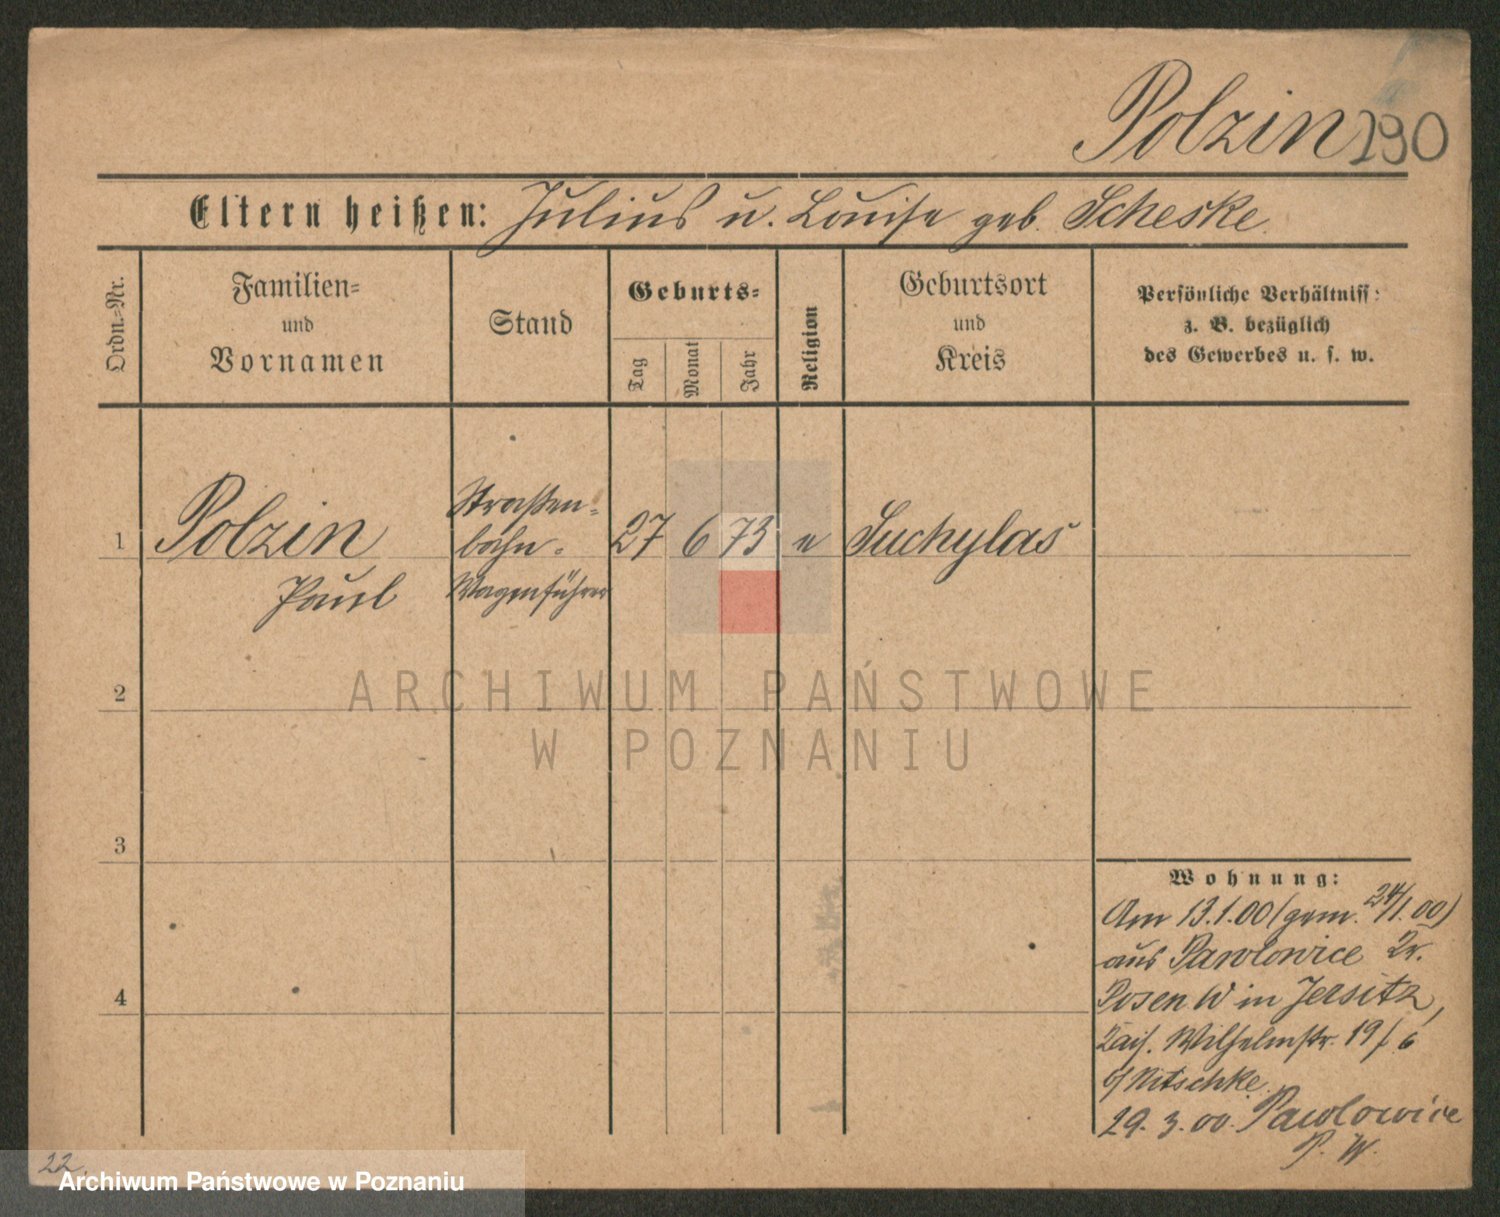 Polzin 190
Eltern heißen: Julius u. Louise geb. Scheske.
Ordn.=Nr.
Familien=
und
Vornamen
Stand
Geburts=
Tag
Monat
Jahr
Religion
Geburtsort
und
Kreis
Persönliche Verhältniss:
z. B. bezüglich
des Gewerbes u. s. w.
1 Polzin Straßen= 27 6 73 e Suchylas
Paul bahn=
Wagenführer
2
3
4
Wohnung:
Am 13.1.00 (gem. 24/1.00)
aus Pawlowice Kr.
Posen W in Jersitz,
Kais. Wilhelmstr. 19/6
b/ Nitschke.
29. 3. 00 Pawlowice
P. W.
22.
ARCHIWUM PAŃSTWOWE
W POZNANIU
Archiwum Państwowe w Poznaniu